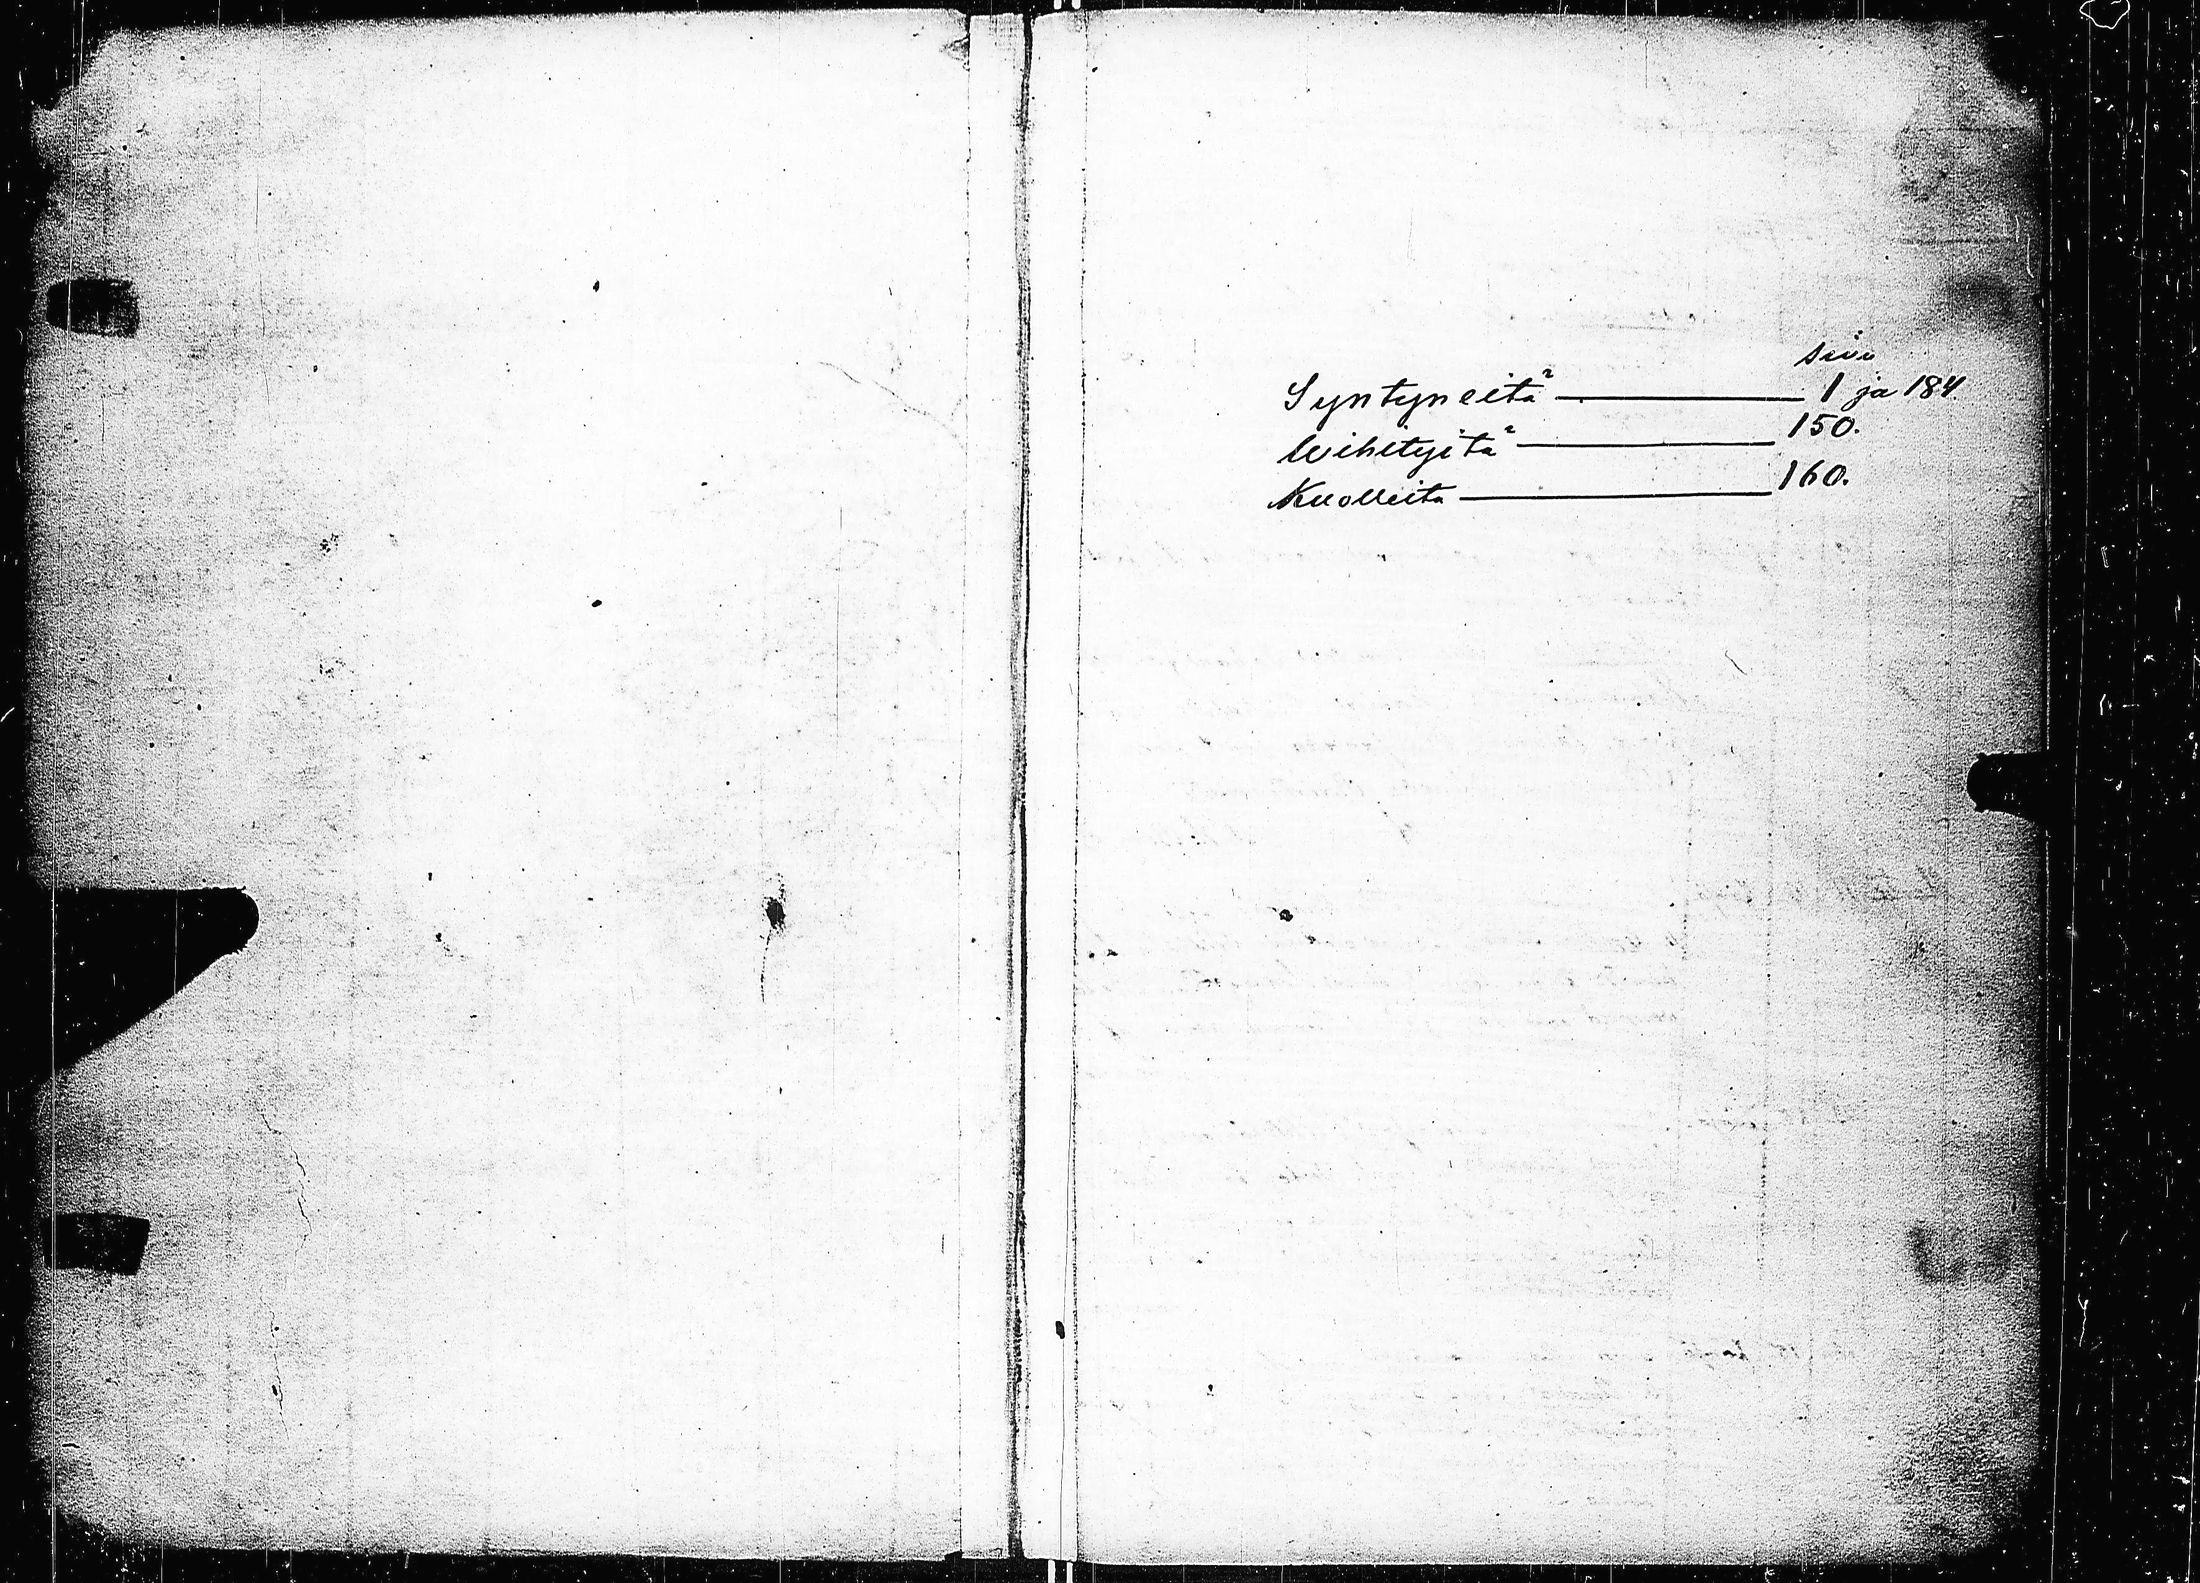 sivu
Syntyneitä — 1 ja 184.
Wihityitä — 150.
Kuolleita — 160.